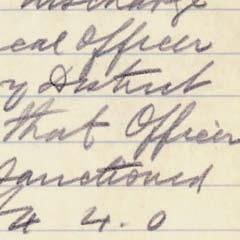 discharge
cal Officer
y District
that Officer
sanctioned
4.0